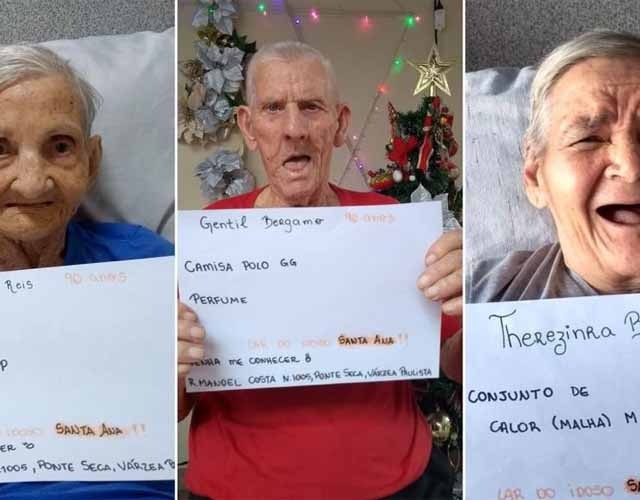 Reis 90 anos
P
IDOSO SANTA ANA !!
ER
1005, PONTE SECA, VÁRZEA P
Gentil Bergamo 90 anos
CAMISA POLO GG
PERFUME
LAR DO IDOSO SANTA ANA !!
VENHA ME CONHECER
R. MANOEL COSTA N.1005, PONTE SECA, VÁRZEA PAULISTA
Therezinha B
CONJUNTO DE
CALOR (MALHA) M
LAR DO IDOSO SA